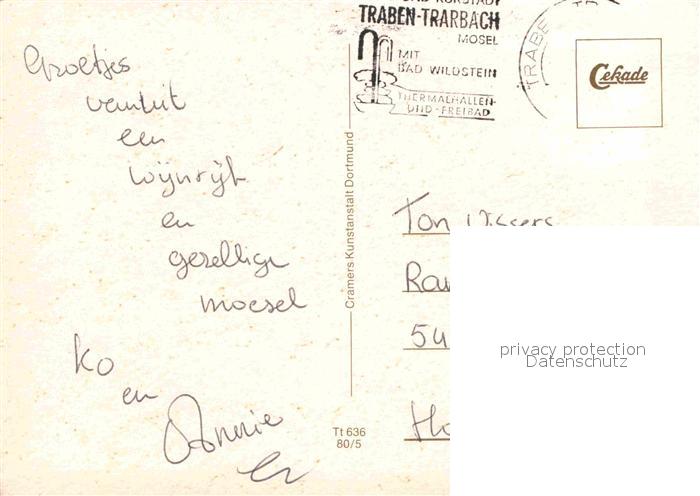 Groetjes
vanuit
een
wijnrijk
en
gezellige
moesel
Ko
en
Annie
TRABEN-TRARBACH
MOSEL
MIT
BAD WILDSTEIN
THERMALHALLEN-
UND-FREIBAD
TRABE
Cekade
Cramers Kunstanstalt Dortmund
Tt 636
80/5
Ton Vissers
54
privacy protection
Datenschutz